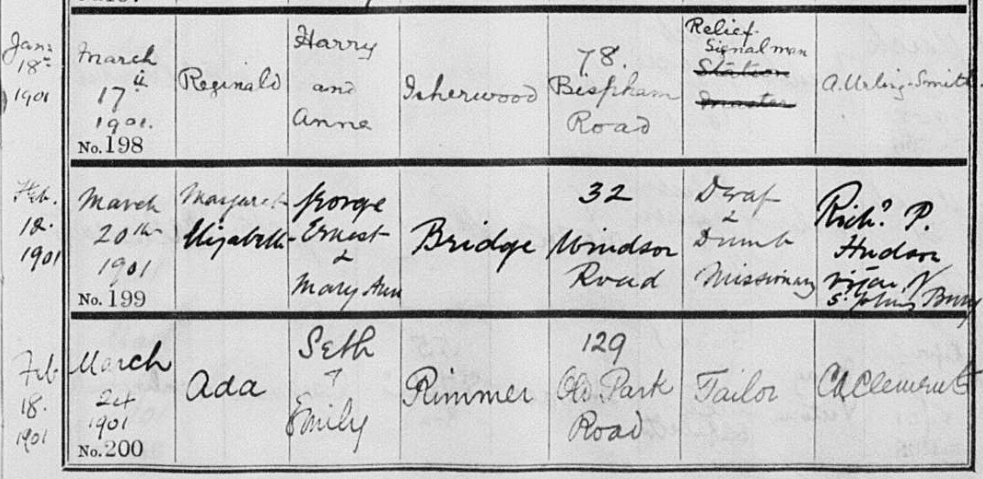 Jan: 18th 1901
March 17th 1901. No. 198
Reginald
Harry and Anne
Isherwood
78. Bispham Road
Relief Signalman Station Master
A. Urling-Smith.
Feb. 12. 1901
March 20th 1901 No. 199
Margaret Elizabeth
George Ernest & Mary Ann
Bridge
32 Windsor Road
Deaf & Dumb Missionary
Richd P. Hudson Vicar of St Johns Bury
Feb 18. 1901
March 24 1901 No. 200
Ada
Seth + Emily
Rimmer
129 Old Park Road
Tailor
Clements